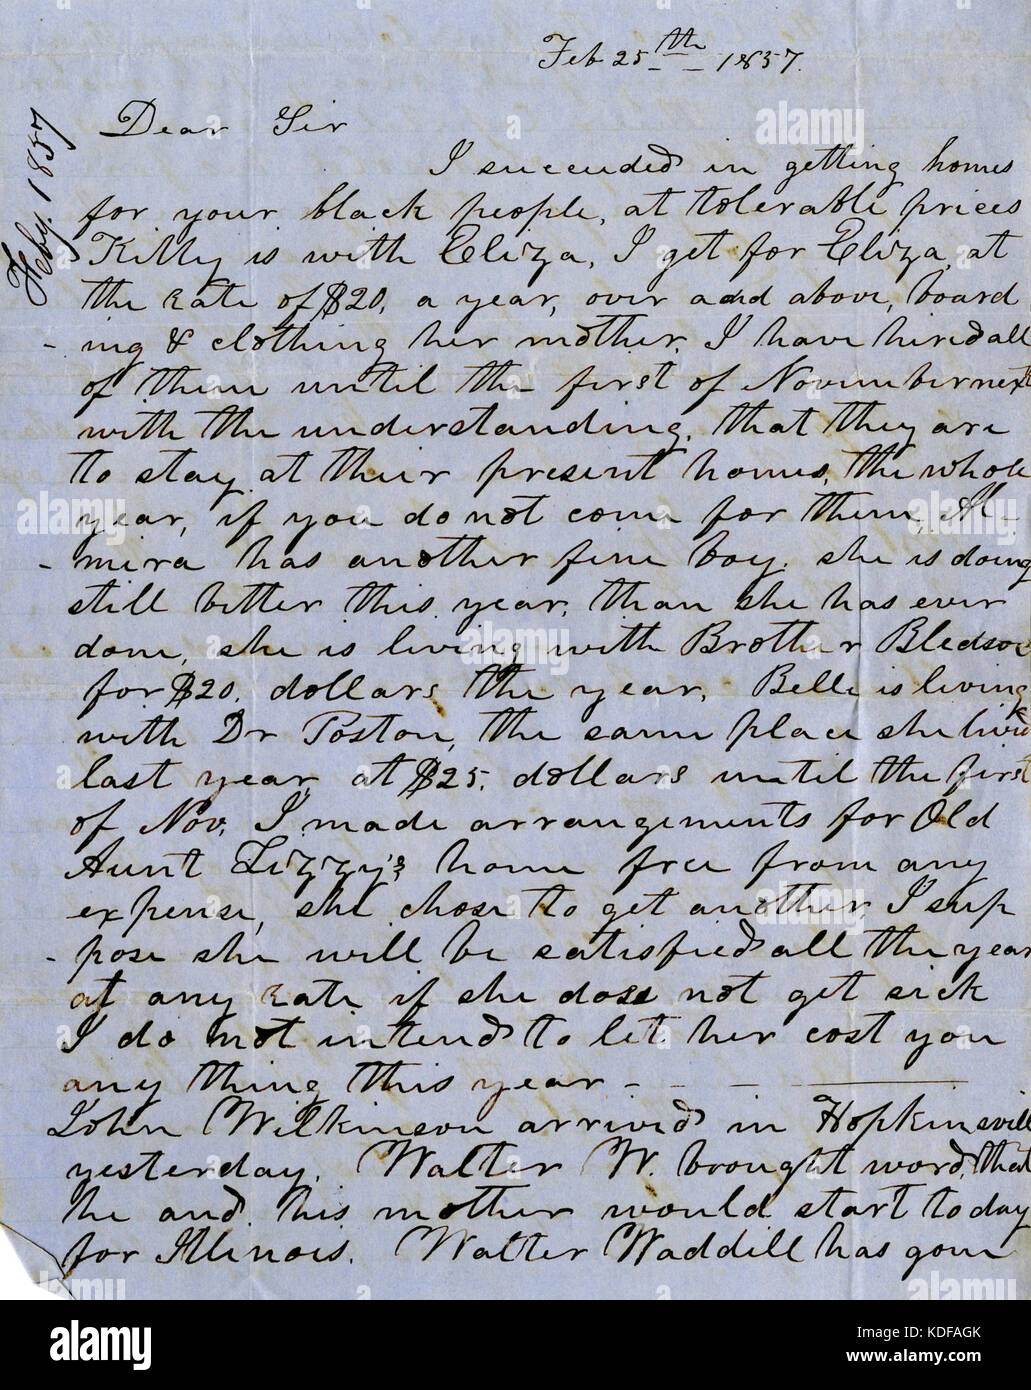 Feb 25th 1857.
Feby. 1857
Dear Sir
I succeeded in getting homes
for your black people, at tolerable prices
Kitty is with Eliza, I get for Eliza, at
the rate of $20, a year, over and above, board
- ing & clothing her mother, I have hired all
of them until the first of November next
with the understanding, that they are
to stay at their present homes, the whole
year, if you do not come for them, Al-
- mira has another fine boy. she is doing
still better this year, than she has ever
done, she is living with Brother Bledsoe
for $20. dollars the year, Belle is living
with Dr Poston, the same place she lived
last year, at $25. dollars until the first
of Nov, I made arrangements for Old
Aunt Lizzy's home free from any
expense, she chose to get another, I sup
- pose she will be satisfied all the year
at any rate if she does not get sick
I do not intend to let her cost you
any thing this year - - - -
John Wilkinson arrived in Hopkinsvill
yesterday, Walter W. brought word, that
he and his mother would start today
for Illinois. Walter Waddill has gone
alamy
Image ID: KDFAGK
www.alamy.com